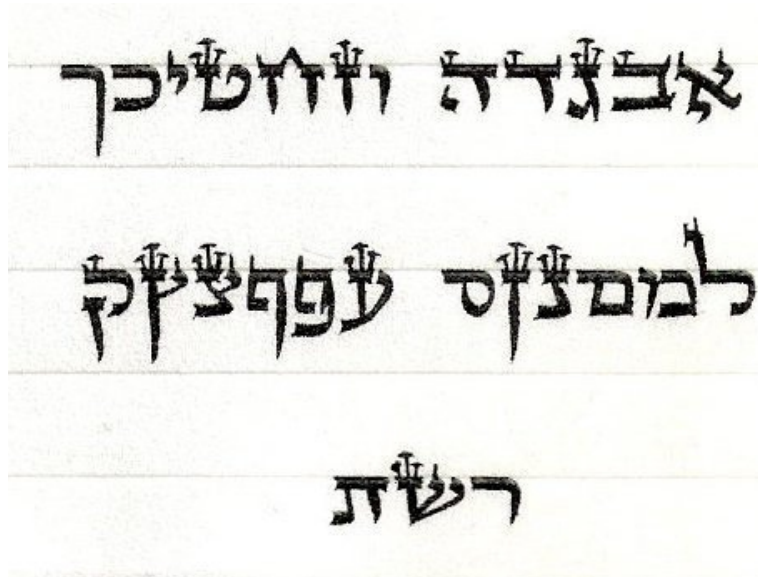 אבגדה וזחטיכך
למםנןס עפףצץק
רשת